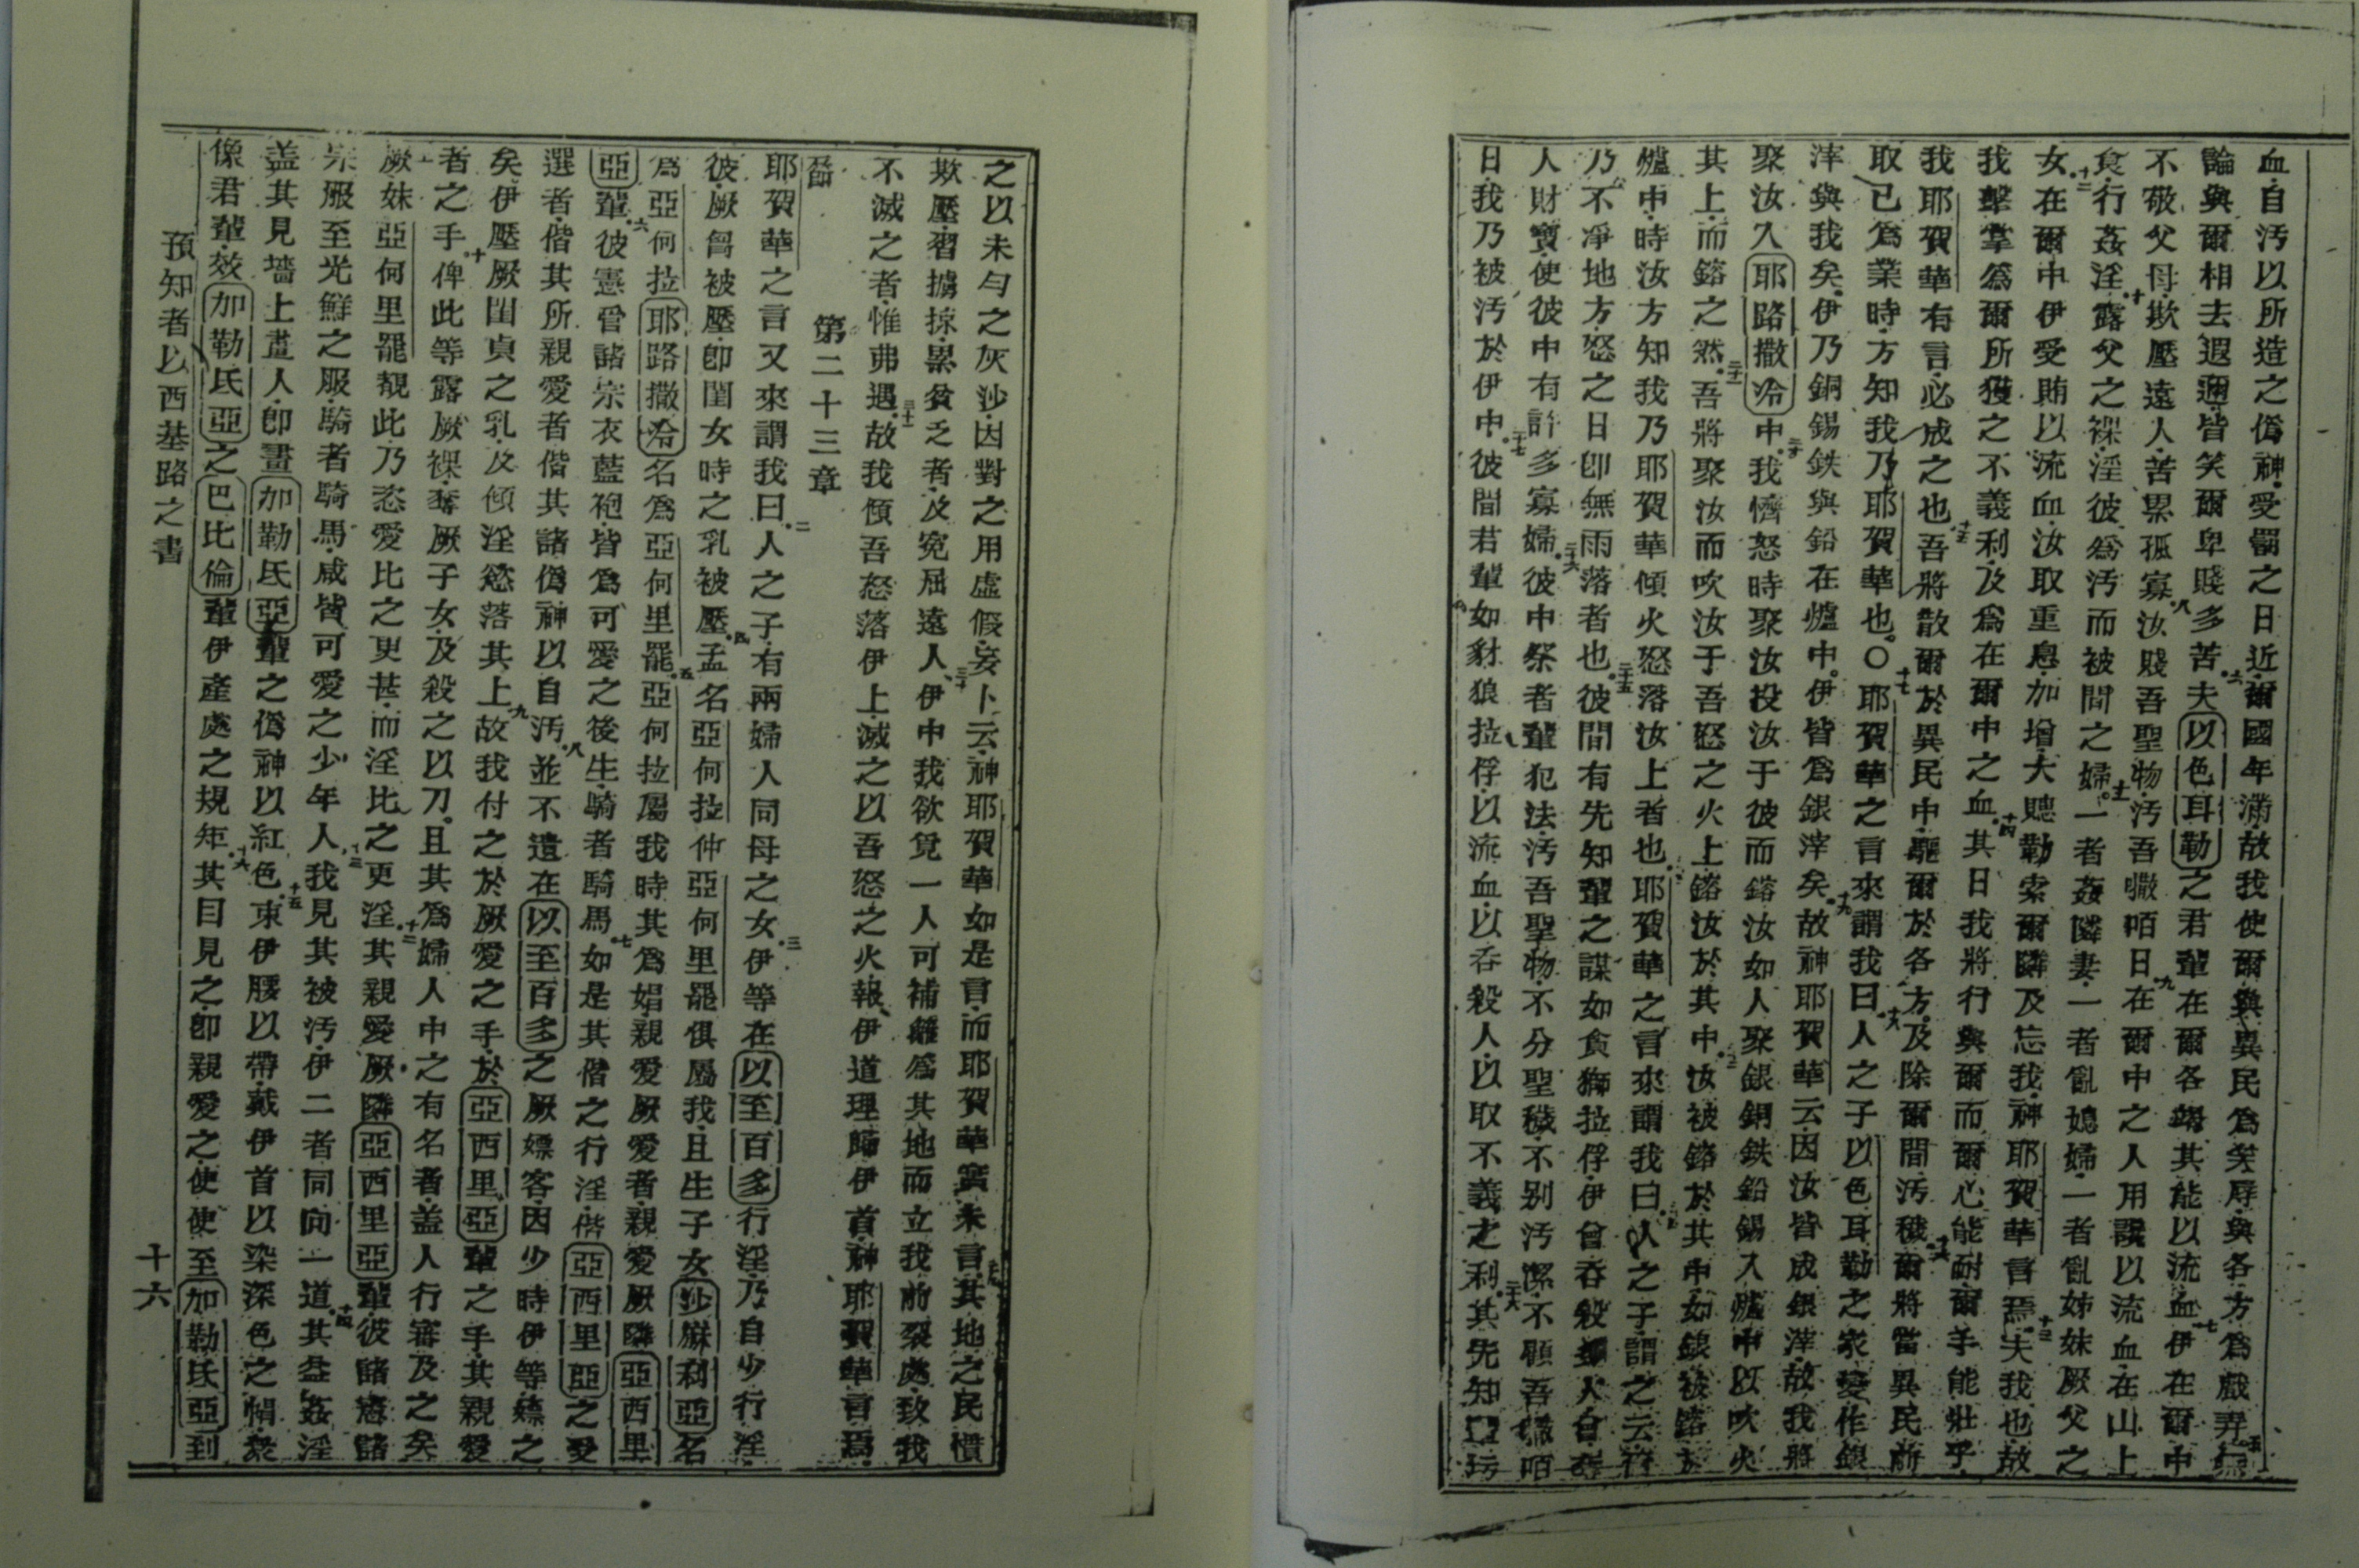 血自汚以所造之僞神受罰之日近爾國年滿故我使爾與異民爲笑辱與各方爲戲弄五無
論與爾相去遐邇皆笑爾卑賤多苦六夫以色耳勒之君輩在爾各竭其能以流血七伊在爾中
不敬父母欺壓遠人苦累孤寡八汝賤吾聖物汚吾𠿕咟日九在爾中之人用讒以流血在山上
食行姦淫十露父之裸淫彼爲汚而被間之婦十一一者姦隣妻一者亂媳婦一者亂姊妹厥父之
女十二在爾中伊受賄以流血汝取重息加增大聽勒索爾隣及忘我神耶賀華言焉十三夫我也故
我擊掌爲爾所獲之不義利及爲在爾中之血十四其日我將行與爾而爾心能耐爾手能壯乎
我耶賀華有言必成之也十五吾將散爾於異民中驅爾於各方及除爾間汚穢十六爾將當異民前
取己爲業時方知我乃耶賀華也〇十七耶賀華之言來謂我曰十八人之子以色耳勒之家變作銀
滓與我矣伊乃銅錫鉄與鉛在爐中伊皆爲銀滓矣十九故神耶賀華云因汝皆成銀滓故我將
聚汝入耶路撒冷中二十我儕怒時聚汝投汝于彼而鎔汝如人聚銀銅鉄鉛錫入爐中以吹火
其上而鎔之然二十一吾將聚汝而吹汝于吾怒之火上鎔汝於其中汝被鎔於其中如銀被鎔於
爐中時汝方知我乃耶賀華傾火怒落汝上者也耶賀華之言來謂我曰人之子謂之云汝
乃不凈地方怒之日卽無雨落者也二十五彼間有先知輩之謀如貪獅拉俘伊曾吞殺多人
人財寶使彼中有許多寡婦二十六彼中祭者輩犯法汚吾聖物不分聖穢不别汚潔不顧吾𠿕咟
日我乃被汚於伊中二十七彼間君輩如豺狼拉俘以流血以吞殺人以取不義之利二十八其先知
之以未勻之灰沙因對之用虛假妄卜云神耶賀華如是言而耶賀華實未言二十九其地之民慣
欺壓習擄掠累貧乏者及寃屈遠人三十伊中我欲覓一人可補籬爲其地而立我前裂處致我
不滅之者惟弗遇三十一故我傾吾怒落伊上滅之以吾怒之火報伊道理歸伊首神耶賀華言焉
第二十三章
一節
耶賀華之言又來謂我曰二人之子有兩婦人同母之女三伊等在以至百多行淫乃自少行淫
彼厥胷被壓卽閨女時之乳被壓四孟名亞何拉仲亞何里罷俱屬我且生子女沙麻利亞名
爲亞何拉耶路撒冷名爲亞何里罷五亞何拉屬我時其爲娼親愛厥愛者親愛厥隣亞西里
亞輩六彼憲督諸宗衣藍袍皆爲可愛之後生騎者騎馬七如是其偕之行淫偕亞西里亞之受
選者偕其所親愛者偕其諸僞神以自汚八並不遺在以至百多之厥嫖客因少時伊等嫖之
矣伊壓厥閨貞之乳及傾淫慾落其上九故我付之於厥愛之手於亞西里亞輩之手其親愛
者之手十俾此等露厥裸奪厥子女及殺之以刀且其爲婦人中之有名者盖人行審及之矣
厥妹亞何里罷覩此乃恣愛比之更甚而淫比之更淫十二其親愛厥隣亞西里亞輩彼諸憲諸
宗服至光鮮之服騎者騎馬咸皆可愛之少年人十三我見其被汚伊二者同向一道十四其益姦淫
盖其見墻上畫人卽畫加勒氐亞輩之僞神以紅色十五束伊腰以帶戴伊首以染深色之帽衆
像君輩效加勒氐亞之巴比倫輩伊產處之規矩十六其目見之卽親愛之使使至加勒氐亞到
預知者以西基路之書
十六